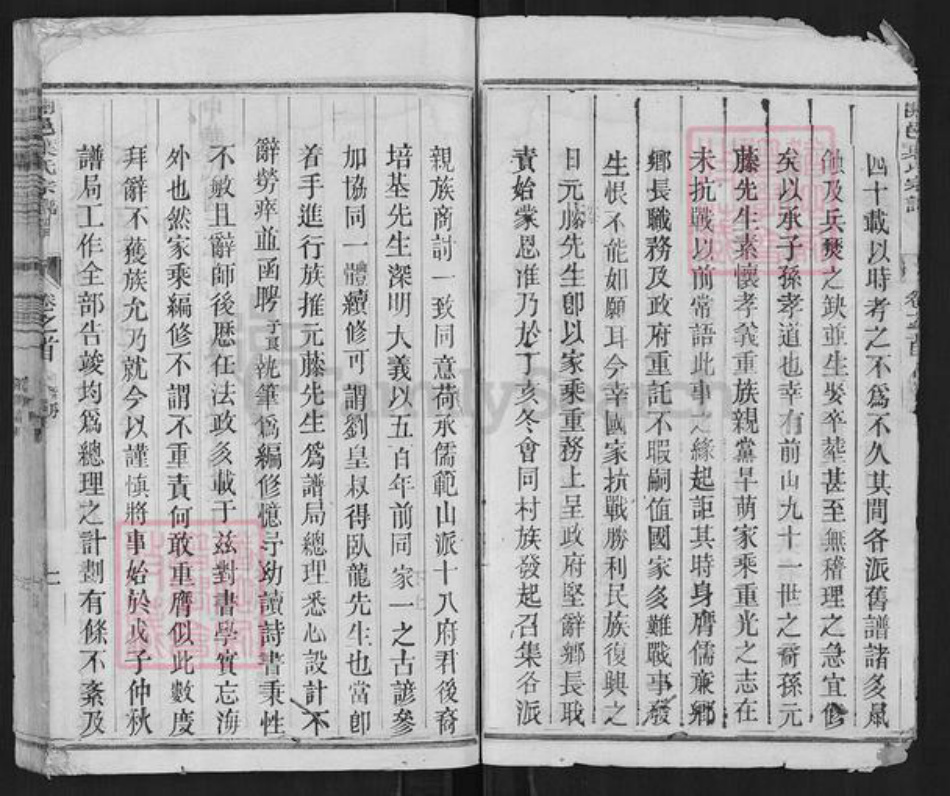 四十載以時考之不爲不久其間各派舊譜諸多鼠
蝕及兵燹之缺並生娶卒塟甚至無稽理之急宜修
矣以承子孫孝道也幸有前山九十一世之裔孫元
藤先生素懷孝義重族親黨早萌家乘重光之志在
未抗戰以前常語此事之緣起詎其時身膺儒兼鄉
鄉長職務及政府重託不暇嗣值國家多難戰事發
生恨不能如願耳今幸國家抗戰勝利民族復興之
日元藤先生卽以家乘重務上呈政府堅辭鄉長職
責始蒙恩准乃於丁亥冬會同村族發起召集各派
親族商討一致同意荷承儒範山派十八府君後裔
培基先生深明大義以五百年前同家一之古諺參
加協同一體續修可謂劉皇叔得臥龍先生也當卽
着手進行族推元藤先生爲譜局總理悉心設計不
辭勞瘁並函聘予眞執筆爲編修憶予幼讀詩書秉性
不敏且辭師後歷任法政多載于茲對書學實忘海
外也然家乘編修不謂不重責何敢重膺似此數度
拜辭不獲族允乃就今以謹慎將事始於戊子仲秋
譜局工作全部告竣均爲總理之計劃有條不紊及
卷之首
七
FamilySearch